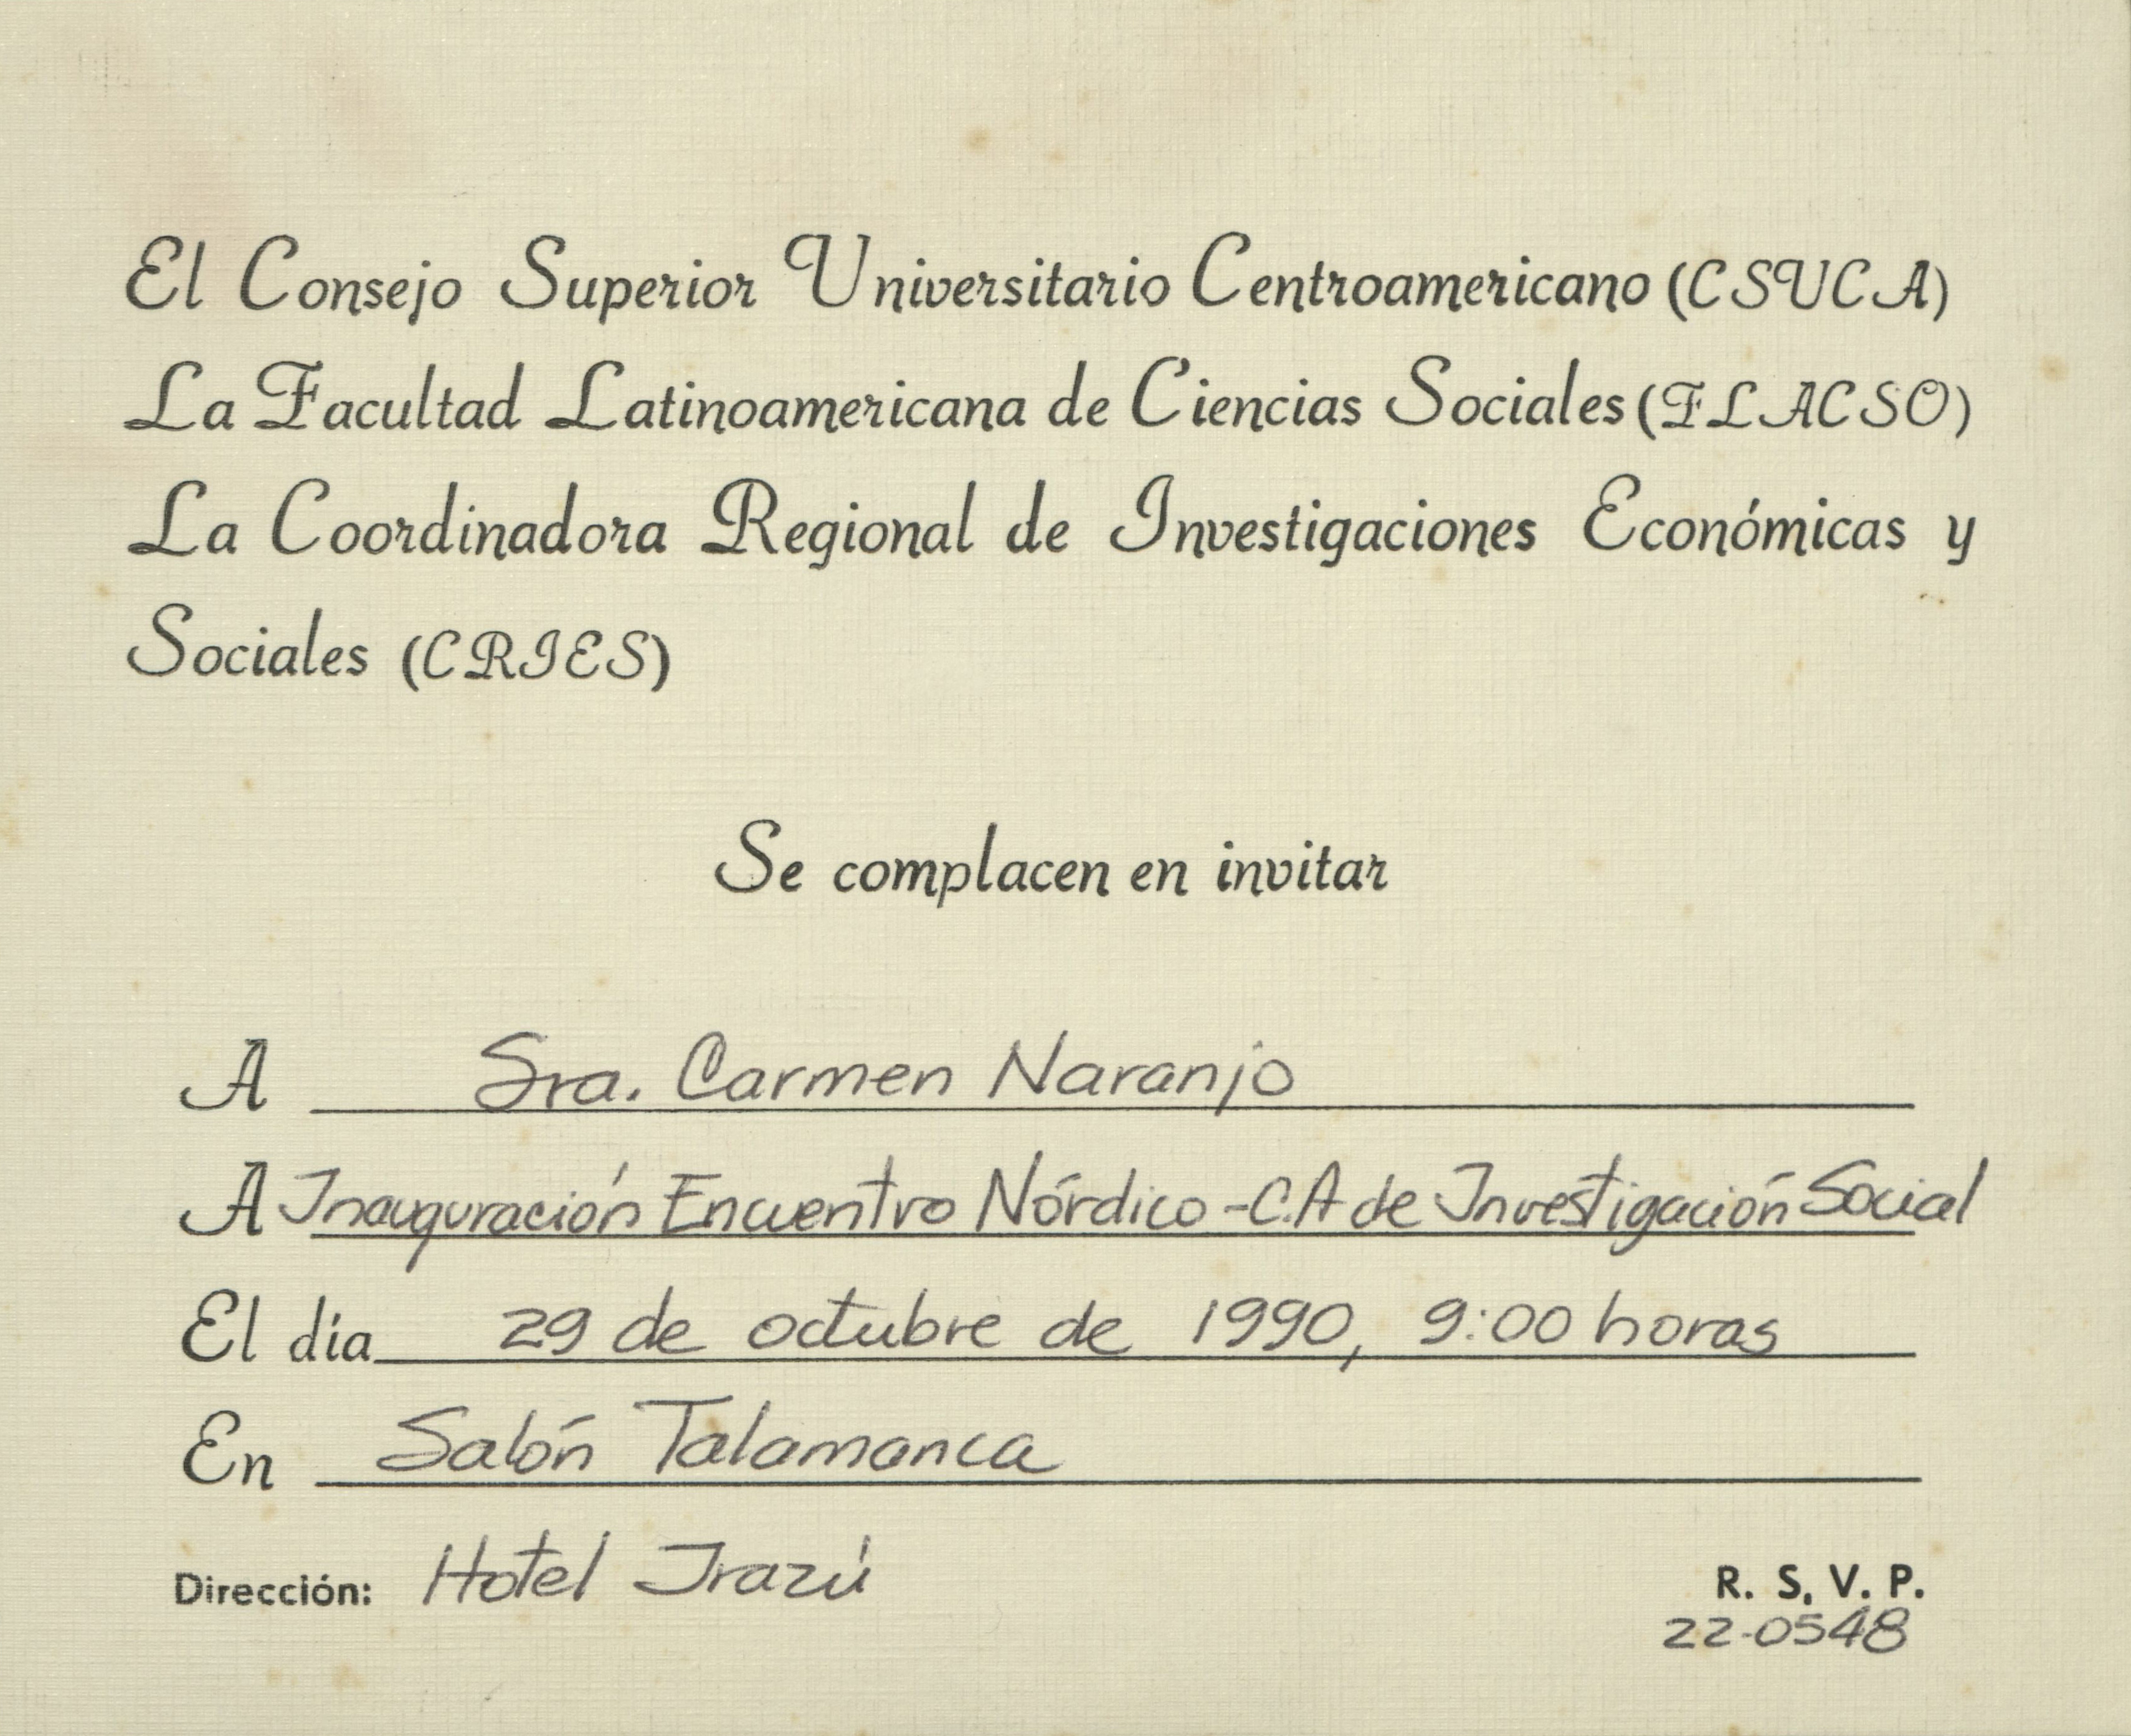 El Consejo Superior Universitario Centroamericano (CSUCA)
La Facultad Latinoamericana de Ciencias Sociales (FLACSO)
La Coordinadora Regional de Investigaciones Económicas y
Sociales (CRIES)
Se complacen en invitar
A Sra. Carmen Naranjo
A Inauguración Encuentro Nórdico-C.A de Investigación Social
El día 29 de octubre de 1990, 9:00 horas
En Salón Talamanca
Dirección: Hotel Irazú
R. S. V. P.
22-0548